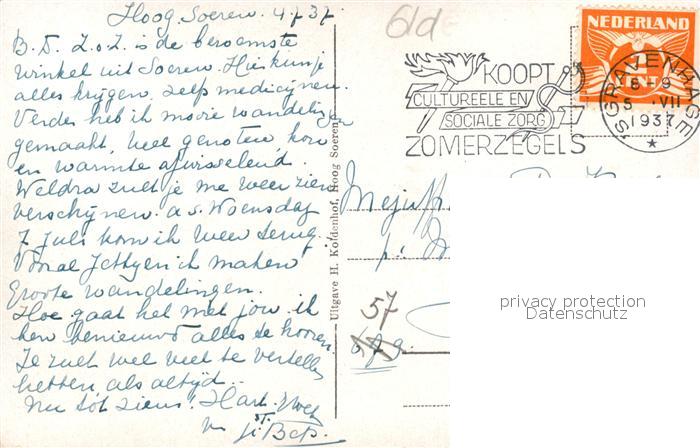 Hoog. Soeren. 4.7.37.
B. D. Z.o.Z. is de beroemste
winkel uit Soeren. Hier kun je
alles krijgen, zelfs medicijnen.
Verder heb ik mooie wandelingen
gemaakt, veel genoten, kou
en warmte afwisselend.
Weldra zult je me weer zien
verschijnen. a.s. Woensdag
7 Juli kom ik weer terug.
Vooral Jetty en ik maken
Groote wandelingen.
Hoe gaat het met jou. ik
ben benieuwd alles te hooren.
Je zult wel veel te vertellen
hebben, als altijd.
Nu tot ziens! Hart.
v. Bep.
Uitgave H. Koldenhof, Hoog Soeren
61d
KOOPT
CULTUREELE EN
SOCIALE ZORG
ZOMERZEGELS
NEDERLAND
'S GRAVENHAGE
8-9
5 VII
1937
Mejuffr
57
privacy protection
Datenschutz